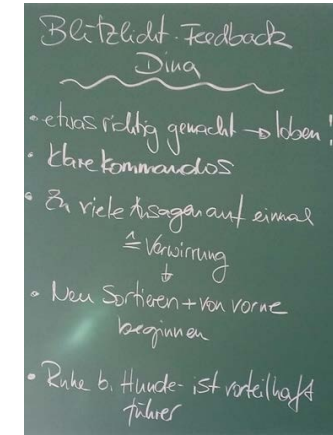 Blitzlicht-Feedback
Dina
• etwas richtig gemacht → loben!
• klare Kommandos
• Zu viele Ansagen auf einmal
≙ Verwirrung
↓
• Neu Sortieren + von vorne
beginnen
• Ruhe b. Hunde- ist vorteilhaft
führer